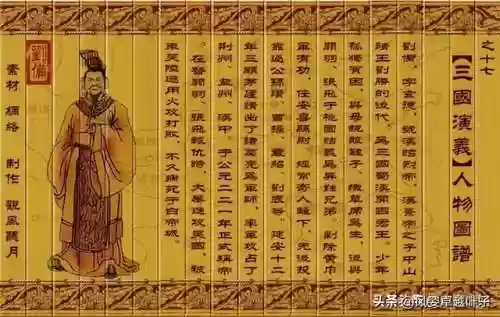 之十七
【三國演義】人物圖譜
劉備，字玄德，號漢昭烈帝，漢景帝之子中山
靖王劉勝的後代，為三國蜀漢開國君王。少年
孤獨貧困，與母親販鞋子、織草席為生，後與
關羽、張飛于桃園結義為異姓兄弟，剿除黃巾
軍有功，任安喜縣尉，經常寄人籬下，先後投
靠過公孫瓚、曹操、袁紹、劉表等。建安十二
年三顧茅廬請出了諸葛亮為軍師，率軍攻占了
荊州、益州、漢中，于公元二二一年正式稱帝
。在替關羽、張飛報仇時，大舉進攻吳國，被
東吳陸遜用火攻打敗，不久病死于白帝城。
劉備
素材 網絡 制作 觀風聽月